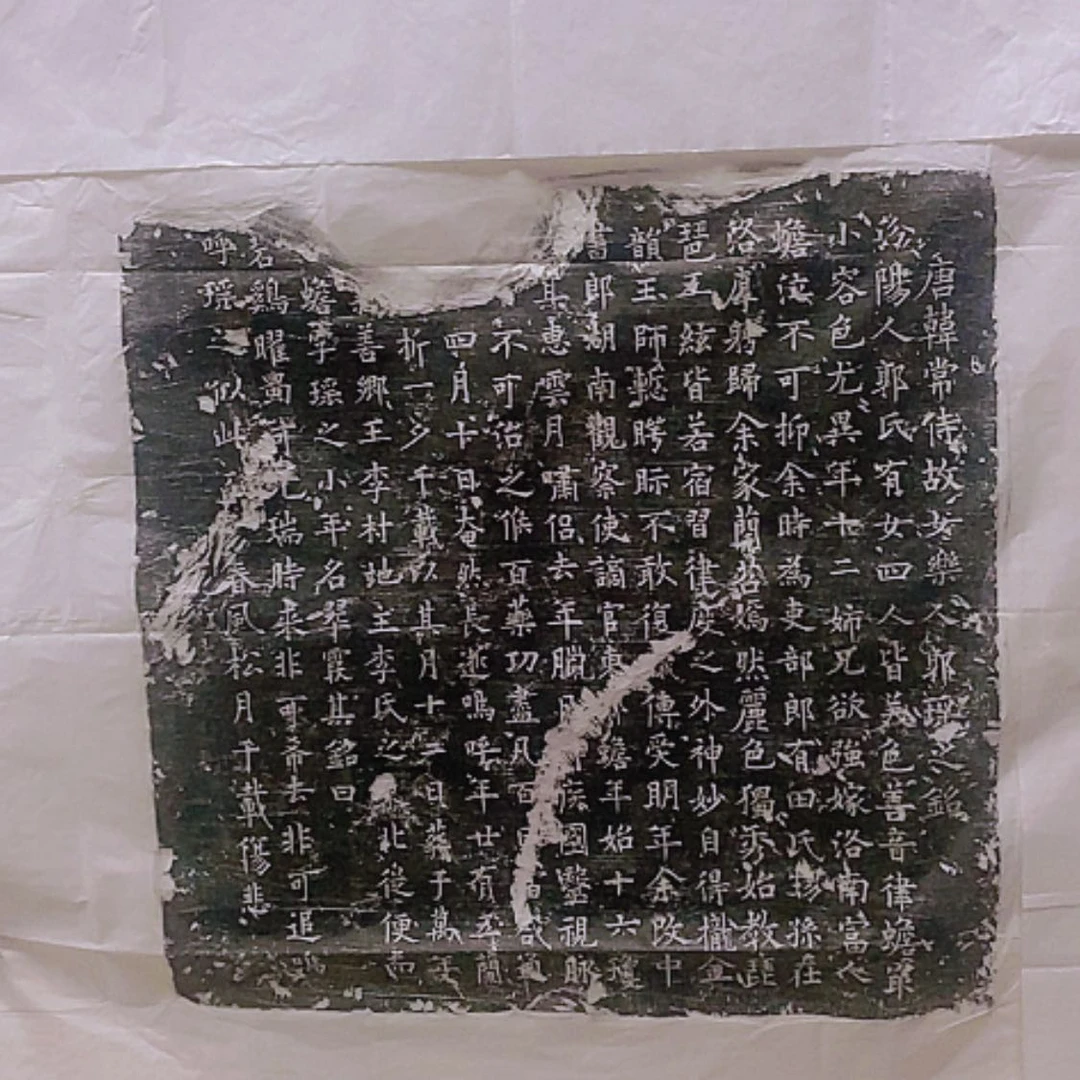 唐韓常侍故女樂人郭瑤之銘
陽人郭氏有女四人皆美色善音律蟾最
小容色尤異年十二姉兄欲強嫁洛南富人
蟾泣不可抑余時為吏部郎有田氏孫在
洛歸余家蘭若嫣然麗色獨秀始教琵
琶玉絃皆若宿習律度之外神妙自得攏
韻玉師不敢復傳受明年余改中
書郎湖南觀察使謫官東蟾年始十六
其惠雲月嘯侶去年臘月疾國醫視脉
不可治之候百藥功盡凡百
四月十日奄然長逝嗚呼年廿有五蘭
折一夕千載以其月十二日葬于萬年
善鄉王李村地主李氏之北後便而
蟾字瑤之小年名翠霞其銘曰
若鷄曜瑞時來非可去非可追嗚
呼瑶之似此春風松月千載傷悲